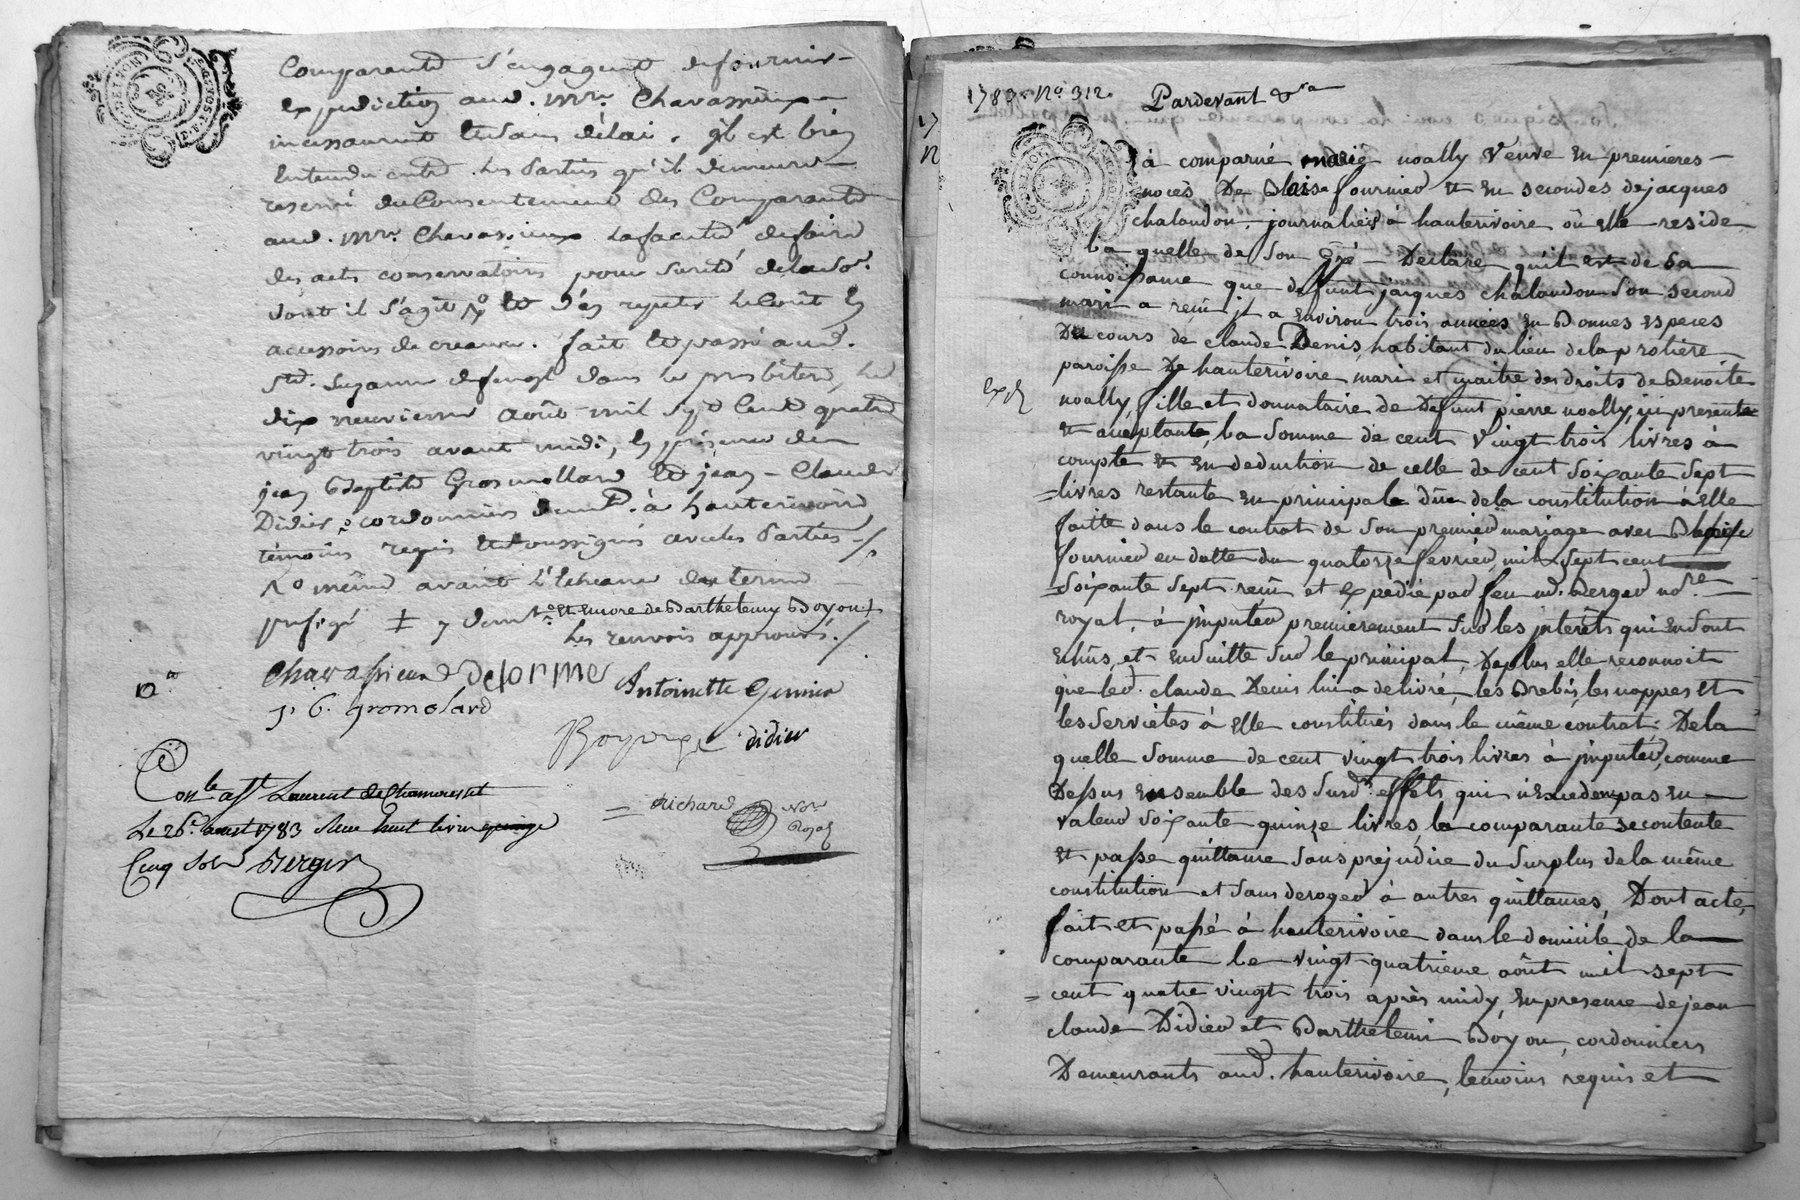 Comparants s'engagent de fournir
expedition aud. mre. Chavassieux
incessament et sans délai. il est bien
Entendu entre les Parties qu'il demeure
reservé du Consentement des Comparants
aud. mre. Chavassieux la faculté de faire
des actes conservatoires pour sureté de lad. so.
dont il s'agit No et d'en repeter le Coût en
accessoires de creance. fait et passé aud.
St. Suzanne dans le presbitere, le
dix neuvieme août mil sept Cents quatre
vingt trois avant midi, en présence de
jean Baptiste Gromollard et jean Claude
Didier cordonniers dem. à hauterivoire
témoins requis et soussignés avec les Parties ./.
No même avant l'Echeance du terme
prefigé ‡ 7 dem. et encore de Barthelemy Boyon ‡
les renvois approuvés ./.
Chavassieux Delorme Antoinette Gunier
j. b. gromolard
Boyon didier
Conle. a St. Laurent de Chamousset
Le 26e. aoust 1783 Reçu huit livres quinze
Cinq sols Berger
Richard Nore. Royal
1783. No. 312.
Pardevant &ra
à comparüe marie noally veuve en premieres
noces De Blaise fournier et en secondes de jacques
chalandon journalier à hauterivoire où elle reside
la quelle de son Gré Declare qu'il est de sa
connoissance que defunt jacques chalandon son second
mari a reçu il y a environ trois années en Bonnes especes
Du cours de claude Denis, habitant du lieu de la protiere
paroisse De hauterivoire mari et maitre des droits de Benoite
Exp.
noally, fille et donnataire de Defunt pierre noally, ici presente
et acceptante, la somme de cent vingt trois livres à
compte et en deduction de celle de cent soixante sept
livres restante en principale düe de la constitution à elle
faitte dans le contrat de son premier mariage avec Blaise
fournier en datte du quatorze fevrier mil sept cent
soixante sept reçu et expédié par feu md. Berger nore.
royal, à jmputer premierement sur les jnterêts qui en sont
echûs, et ensuitte sur le principal, Deplus elle reconnoit
que led. claude Denis lui a delivré, les Brebis, les nappes et
les serviétes à elle constitués dans le même contrat: De la
quelle somme de cent vingt trois livres à jmputer, comme
Dessus ensemble des susd. effets qui n'excedent pas en
valeur soixante quinze livres, la comparante se contente
et passe quittance sans prejudice du surplus de la même
constitution et sans deroger à autres quittances, Dont acte,
fait et passé à hauterivoire dans le domicile de la
comparante le vingt quatrieme août mil sept
cent quatre vingt trois après midy, en presence de jean
claude Didier et Barthelemi Boyon, cordonniers
Demeurants aud. hauterivoire, temoins requis et